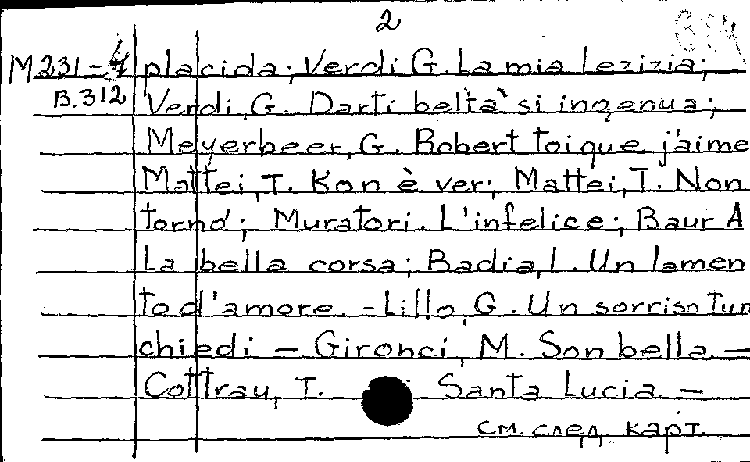 2
M231-4 placida; Verdi G. La mia lezizia;
B.312 Verdi, G. Darti belta' si ingenua;
Meyerbeer, G. Robert toi que j'aime
Mattei, T. Kon è ver; Mattei, T. Non
torno'; Muratori. L'infelice; Baur A
La bella corsa; Badia, L. Un lamen
to d'amore. - Lillo, G. Un sorriso Tum
chiedi - Gironci, M. Son bella -
Cottrau, T. Santa Lucia -
см. след. карт.